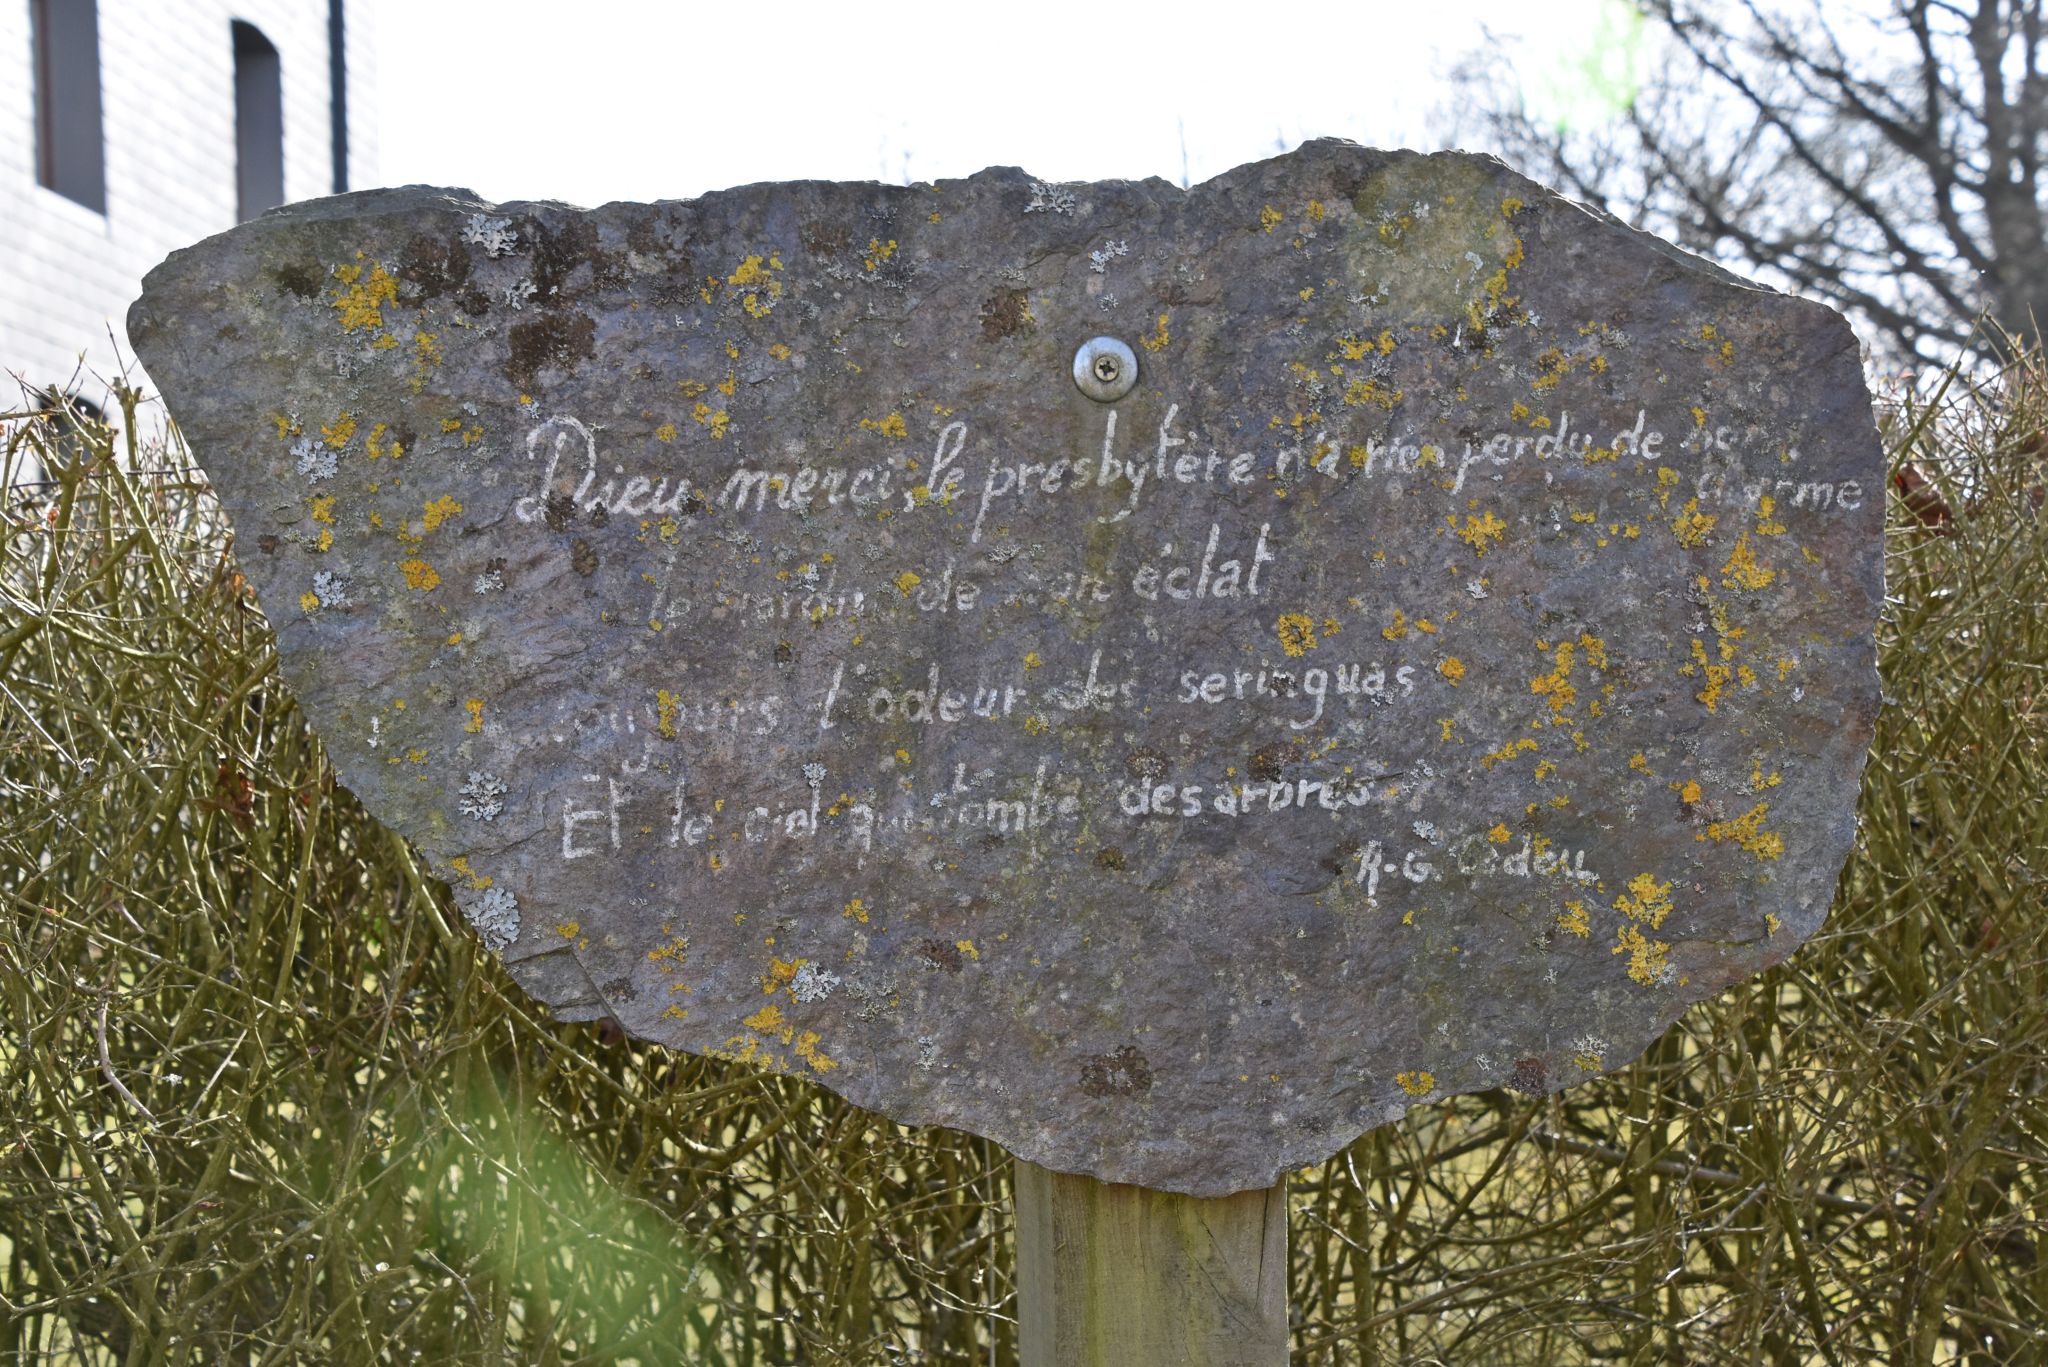 Dieu merci, le presbytère n'a rien perdu de son charme
le jardin de son éclat
Toujours l'odeur des seringuas
Et le ciel qui tombe des arbres
R-G. Cadou